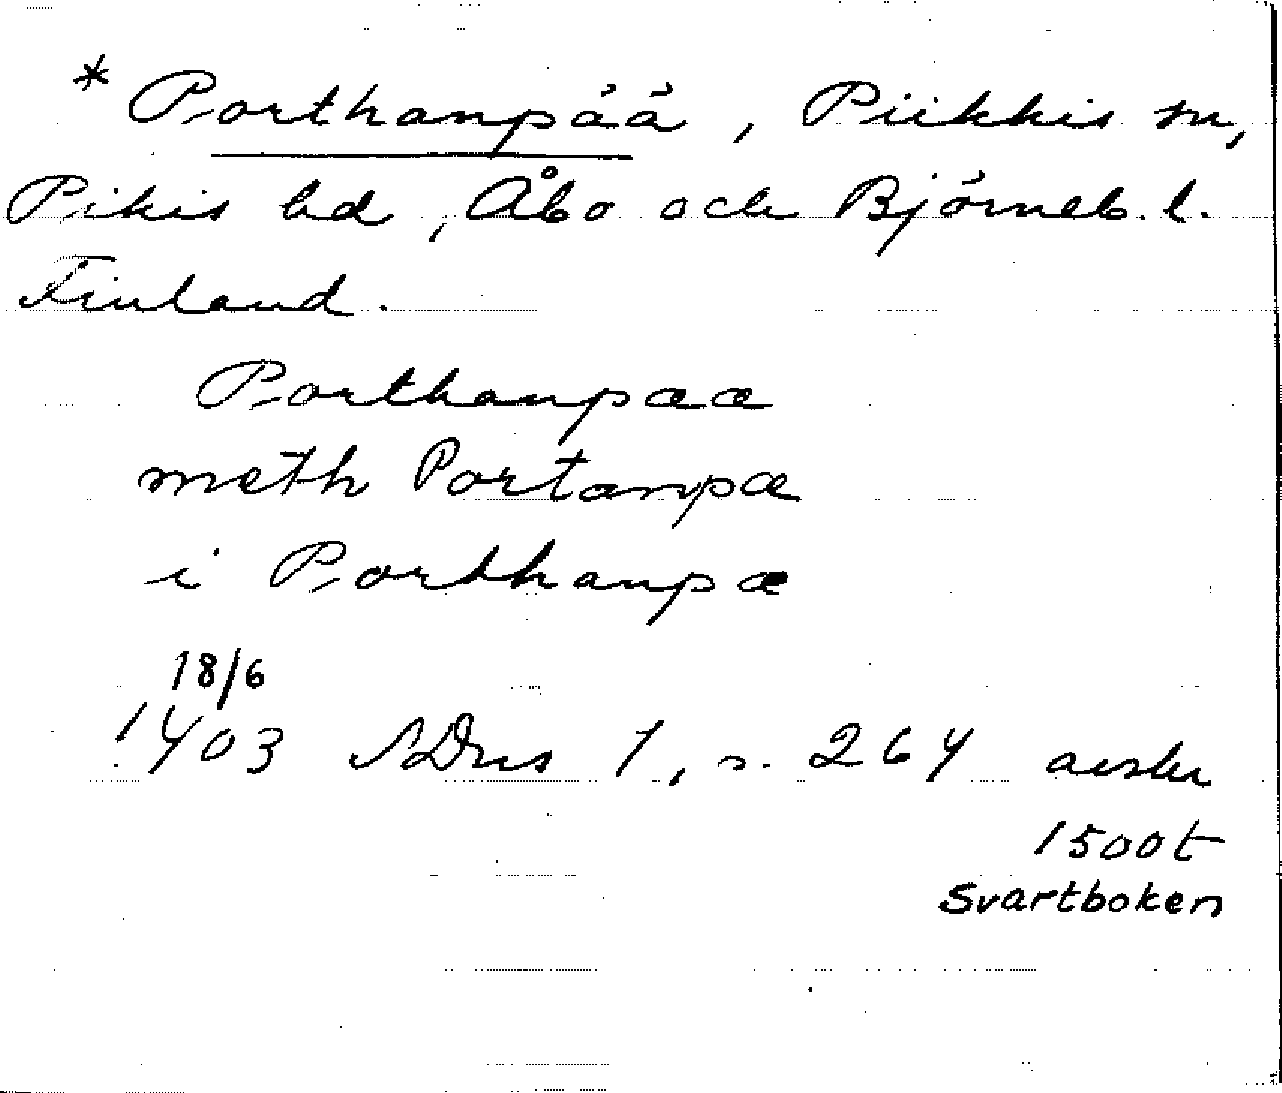 * Porthanpää, Piikkis sn,
Pikis hd, Åbo och Björneb. l.
Finland.
Porthanpææ
meth Portanpæ
i Porthanpæ
18/6
1403 SDns 1, s. 264 avskr
1500t
Svartboken